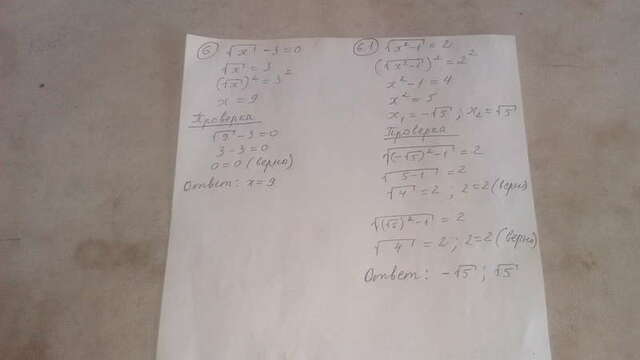 6 √x - 3 = 0
√x = 3
(√x)² = 3²
x = 9
Проверка
√9 - 3 = 0
3 - 3 = 0
0 = 0 (верно)
Ответ: x = 9
6.1 √x²-1 = 2
(√x²-1)² = 2²
x² - 1 = 4
x² = 5
x₁ = -√5 ; x₂ = √5
Проверка
√(-√5)² - 1 = 2
√5-1 = 2
√4 = 2 ; 2=2 (верно)
√(√5)² - 1 = 2
√4 = 2 ; 2=2 (верно)
Ответ: -√5 ; √5